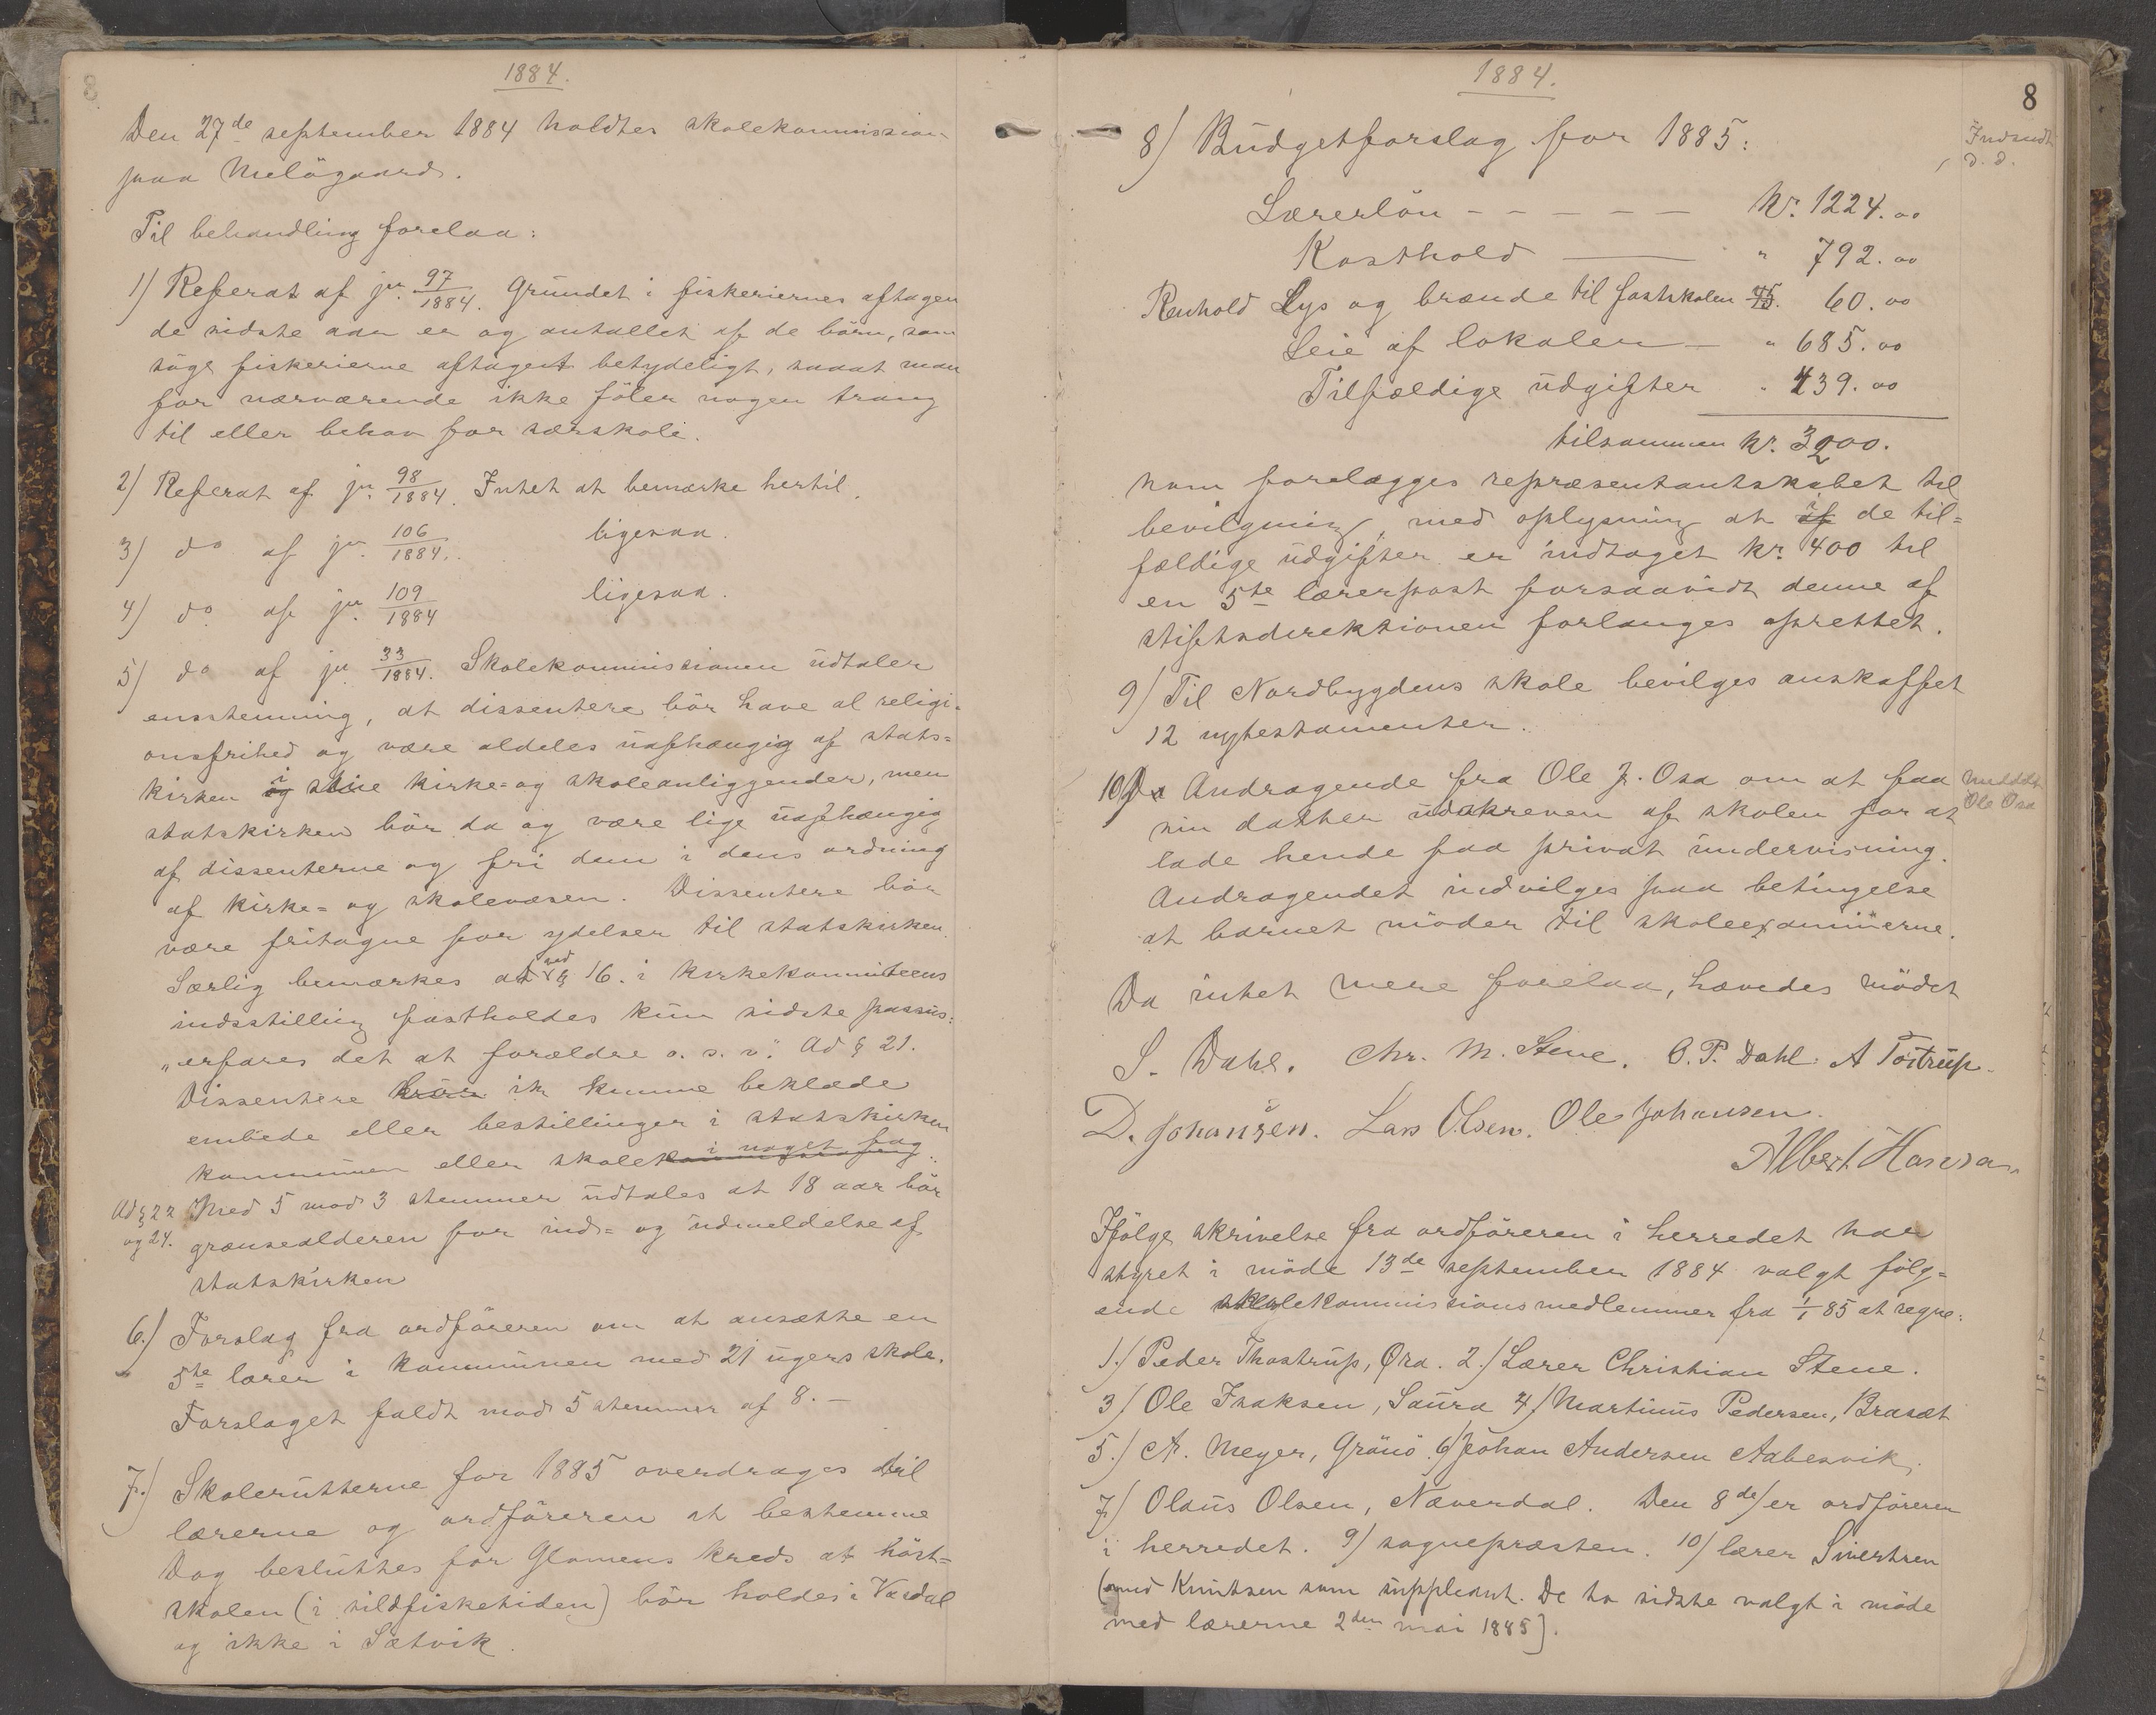 8
1884.
Den 27de september 1884 holdtes skolekommission
paa Meløgaard.
Til behandling forelaa:
1) Referat af jn. 97/1884. Grundet i fiskeriernes aftagen
de sidste aar er og antallet af de börn, som
söge fiskerierne aftaget betydeligt, saaat man
for nærværende ikke föler nogen trang
til eller behov for særskole.
2) Referat af jn. 98/1884. Intet at bemærke hertil.
3) do af jn. 106/1884. ligesaa.
4) do af jn. 109/1884 ligesaa.
5) do af jn. 33/1884. Skolekommissionen udtaler
ensstemmig, at dissentere bör have al religi-
onsfrihed og være aldeles uafhængig af stats=
kirken i sine kirke= og skoleanliggender, men
statskirken bör da og være lige uafhængig
af dissenterne og fri dem i dens ordning
af kirke= og skolevæsen. Dissentere bör
være fritagne for ydelser til statskirken.
Særlig bemærkes at ved § 16. i kirkekommiteens
indstilling fastholdes kun sidste passus:
„erfares det at forældre o. s. v." Ad § 21.
Dissentere bör ik kunne beklæde
embede eller bestillinger i statskirken
kommunen eller skolek i noget fag.
Ad § 22 Med 5 mod 3 stemmer udtales at 18 aar bör
og 24. grænsealderen for ind= og udmeldelse af
statskirken
6.) Forslag fra ordföreren om at ansætte en
5te lærer i kommunen med 21 ugers skole.
Forslaget faldt mod 5 stemmer af 8. —
7.) Skolerutterne for 1885 overdrages til
lærerne og ordföreren at bestemme
Dog besluttes for Glomens kreds at höst=
skolen (i sildfisketiden) bör holdes i Vasdal
og ikke i Sætvik.
1884.
8
8) Budgetforslag for 1885:
Indsendt
d. d.
Lærerlön - - - - - kr. 1224.00
Kosthold — " 792.00
Renhold Lys og brænde til fastskolen 45. 60.00
Leie af lokaler — " 685.00
Tilfældige udgifter " 439.00
tilsammen kr. 3200.
som forelægges repræsentantskabet til
bevilgning, med oplysning at i de til=
fældige udgifter er indtaget kr. 400 til
en 5te lærerpost forsaavidt denne af
stiftsdirektionen forlanges oprettet.
9) Til Nordbygdens skole bevilges anskaffet
12 nytestamenter.
10) Andragende fra Ole J. Osa om at faa
Meddelt
Ole Osa
sin datter udskreven af skolen for at
lade hende faa privat undervisning.
Andragendet indvilges paa betingelse
at barnet möder til skoleexamiierne.
Da intet mere forelaa, hævedes mödet
S. Dahl. Chr. M. Stene. O. P. Dahl. A Tostrup.
D. Johansen. Lars Olsen. Ole Johansen.
Albert Hansen
Ifölge skrivelse fra ordföreren i herredet har
styret i möde 13de september 1884 valgt fölg=
ende skolekommissionsmedlemmer fra 1/1 85 at regne:
1.) Peder Thostrup, Øra. 2.) Lærer Christian Stene.
3) Ole Isaksen, Saura 4) Martinus Pedersen, Brasæt
5.) A. Meyer, Grönö. 6) Johan Andersen Aabesvik.
7) Olaus Olsen, Næverdal. Den 8de) er ordföreren
i herredet. 9) sognepræsten. 10) lærer Sivertsen
(med Knutsen som suppleant. De to sidste valgt i möde
med lærerne 2den mai 1885).